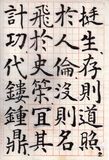 挺生存則道照
於人倫沒則名
飛於史策宜其
計功代鏤鍾鼎